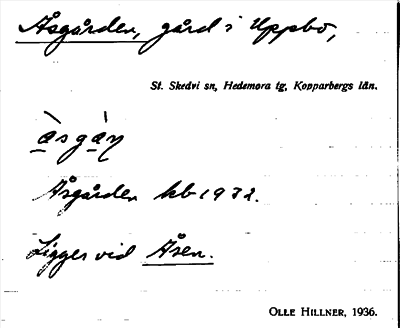 Åsgården, gård i Uppbo,
St. Skedvi sn, Hedemora tg, Kopparbergs län.
àsgàṇ
Åsgården kb 1932.
Ligger vid Åsen.
OLLE HILLNER, 1936.